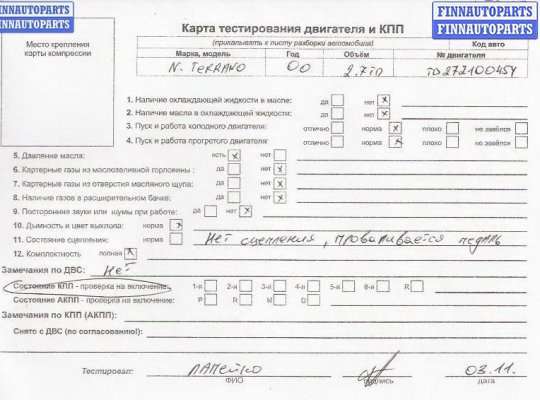 FINNAUTOPARTS
FINNAUTOPARTS
FINNAUTOPARTS
FINNAUTOPARTS
Карта тестирования двигателя и КПП
(прикалывать к листу разборки автомобиля)
Код авто
Место крепления
карты компрессии
Марка, модель
Год
Объём
№ двигателя
N. TERRANO
00
2.7TD
TD272100454
1. Наличие охлаждающей жидкости в масле: да нет x
2. Наличие масла в охлаждающей жидкости: да нет x
3. Пуск и работа холодного двигателя: отлично норма x плохо не завёлся
4. Пуск и работа прогретого двигателя: отлично норма x плохо не завёлся
5. Давление масла: есть x нет
6. Картерные газы из маслозаливной горловины: да нет x
7. Картерные газы из отверстия масляного щупа: да нет x
8. Наличие газов в расширительном бачке: да нет x
9. Посторонние звуки или шумы при работе: да нет x
10. Дымность и цвет выхлопа: норма x
11. Состояние сцепления: норма Нет сцепления, проваливается педаль
12. Комплектность полная x
Замечания по ДВС: Нет
Состояние КПП - проверка на включение: 1-я 2-я 3-я 4-я 5-я 6-я R
Состояние АКПП - проверка на включение: P R N D
Замечания по КПП (АКПП):
Снято с ДВС (по согласованию!):
Тестировал:
03.11.
ФИО
подпись
дата